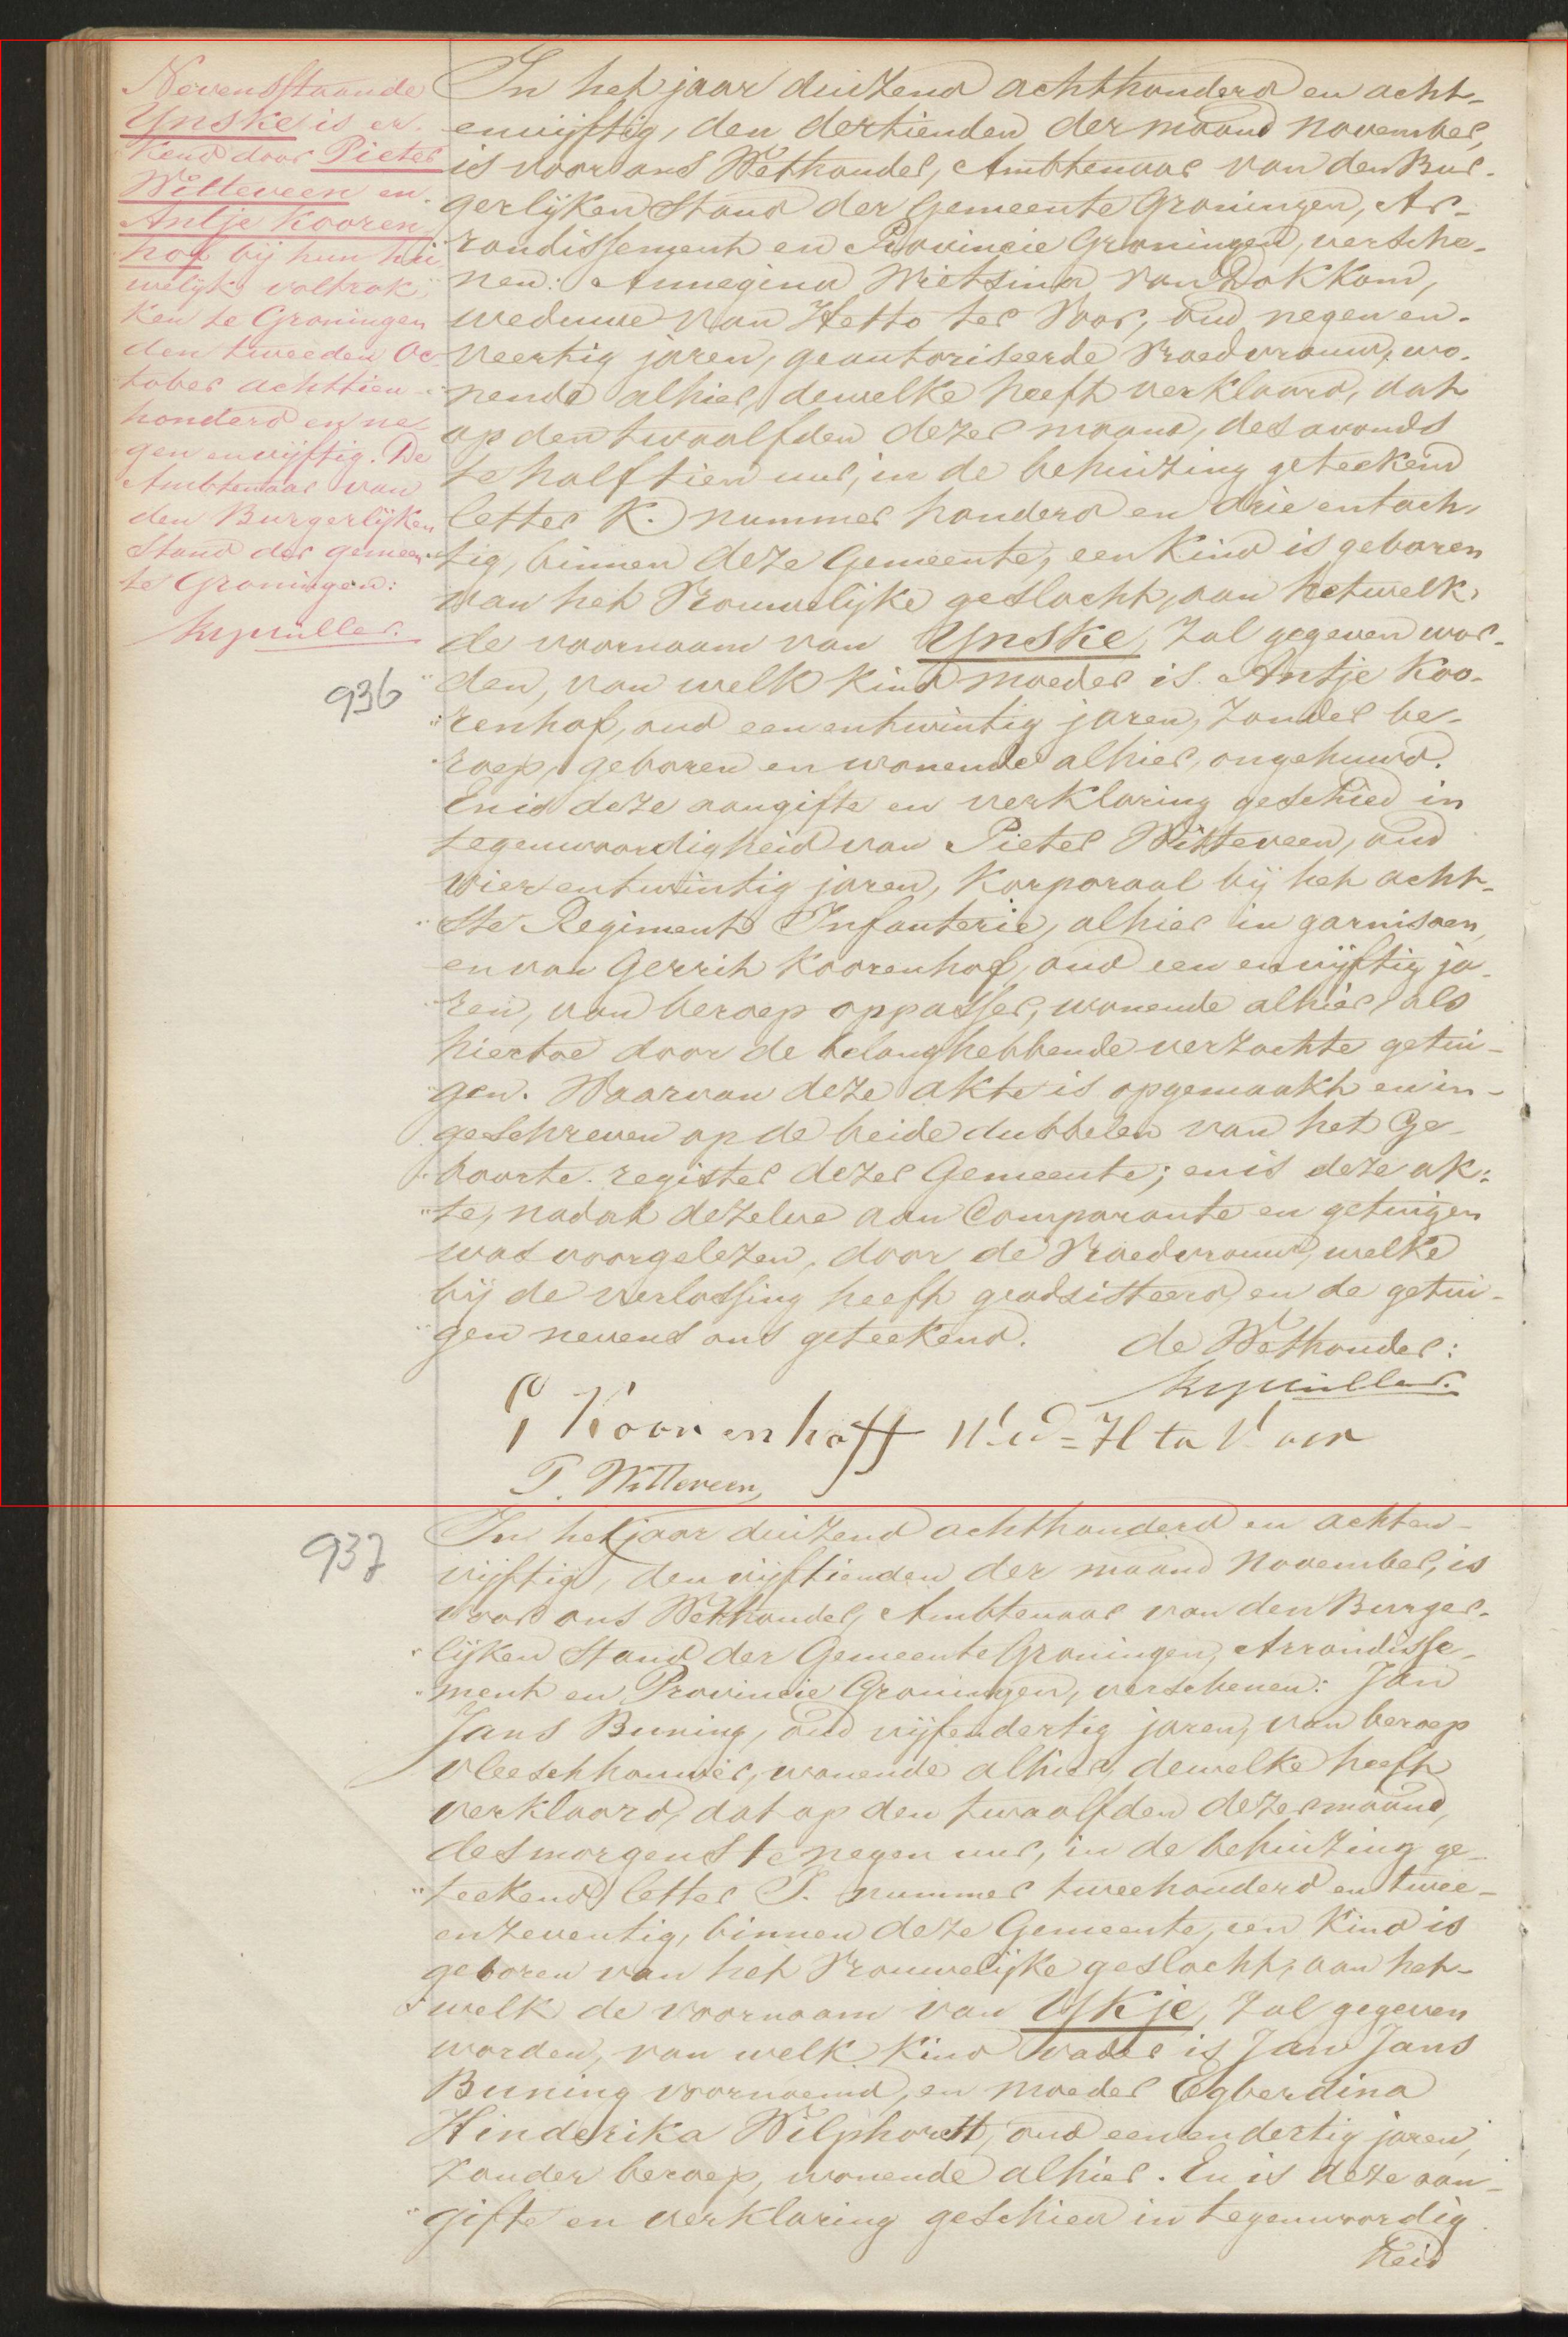 Nevensstaande
Ynske is er-
kend door Pieter
Witteveen en
Antje Kooren
hof bij hun hu
welijk voltrok
ken te Groningen
den tweeden Oc
tober achttien
honderd en ne
gen en vijftig. De
Ambtenaar van
den Burgerlijken
Stand der gemeen
te Groningen:
936
In het jaar duizend achthonderd en acht-
envijftig, den dertienden der maand november,
is voor ons Wethouder, Ambtenaar van den Bur-
gerlijken Stand der Gemeente Groningen, Ar-
rondissement en Provincie Groningen, versche-
nen: Annegina Wietsina van Dokkom,
weduwe van Hetto ter Voor, oud negen en-
veertig jaren, geautoriseerde Vroedvrouw, wo-
nende alhier, dewelke heeft verklaard, dat
op den twaalfden dezer maand, des avonds
te half tien uur, in de behuizing geteekend
letter K. nummer honderd en drie entach-
tig, binnen deze Gemeente, een Kind is geboren
van het Vrouwelijke geslacht, aan hetwelk
de voornaam van Ynske, zal gegeven wor-
den, van welk kind moeder is Antje Koo-
renhof, oud een entwintig jaren, zonder be-
roep, geboren en wonende alhier, ongehuwd.
En is deze aangifte en verklaring geschied in
tegenwoordigheid van Pieter Witteveen, oud
vier entwintig jaren, Korporaal bij het acht-
ste Regiment Infanterie, alhier in garnisoen,
en van Gerrit Koorenhof, oud een en vijftig ja-
ren, van beroep oppasser, wonende alhier, als
hiertoe door de belanghebbende verzochte getui-
gen. Waarvan deze akte is opgemaakt en in-
geschreven op de beide dubbelen van het Ge-
boorte-register dezer Gemeente; en is deze ak-
te, nadat dezelve aan Comparante en getuigen
was voorgelezen, door de Vroedvrouw, welke
bij de verlossing heeft geadsisteerd, en de getui-
gen nevens ons geteekend. de Wethouder:
G Koorenhoff Wed= H ter Voor
P. Witteveen,
937
In het jaar duizend achthonderd en achten-
vijftig, den vijftienden der maand November, is
voor ons Wethouder, Ambtenaar van den Burger-
lijken Stand der Gemeente Groningen, Arrondisse-
ment en Provincie Groningen, verschenen: Jan
Jans Buning, oud vijfendertig jaren, van beroep
vleeschhouwer, wonende alhier, dewelke heeft
verklaard, dat op den twaalfden dezer maand,
des morgens te negen uur, in de behuizing ge-
teekend letter S. nummer tweehonderd en twee-
enzeventig, binnen deze Gemeente, een Kind is
geboren van het Vrouwelijke geslacht, aan het-
welk de voornaam van Ykje, zal gegeven
worden, van welk Kind vader is Jan Jans
Buning voornoemd, en moeder Egberdina
Hinderika Wilphorst, oud eenendertig jaren,
zonder beroep, wonende alhier. En is deze aan-
gifte en verklaring geschied in tegenwoordig
heid